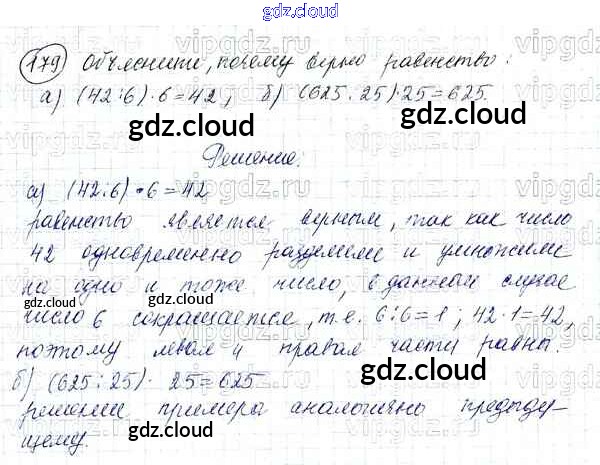 gdz.cloud
179 Объясните, почему верно равенство:
а) (42:6)·6=42; б) (625:25)·25=625.
gdz.cloud
gdz.cloud
Решение.
а) (42:6)·6=42
равенство является верным, так как число
42 одновременно разделили и умножили
на одно и тоже число, в данный случае
gdz.cloud
gdz.cloud
число 6 сокращается, т.е. 6:6=1; 42·1=42,
поэтому левая и правая части равны.
gdz.cloud
gdz.cloud
б) (625:25)·25=625
решении примера аналогично предыду-
щему.
gdz.cloud